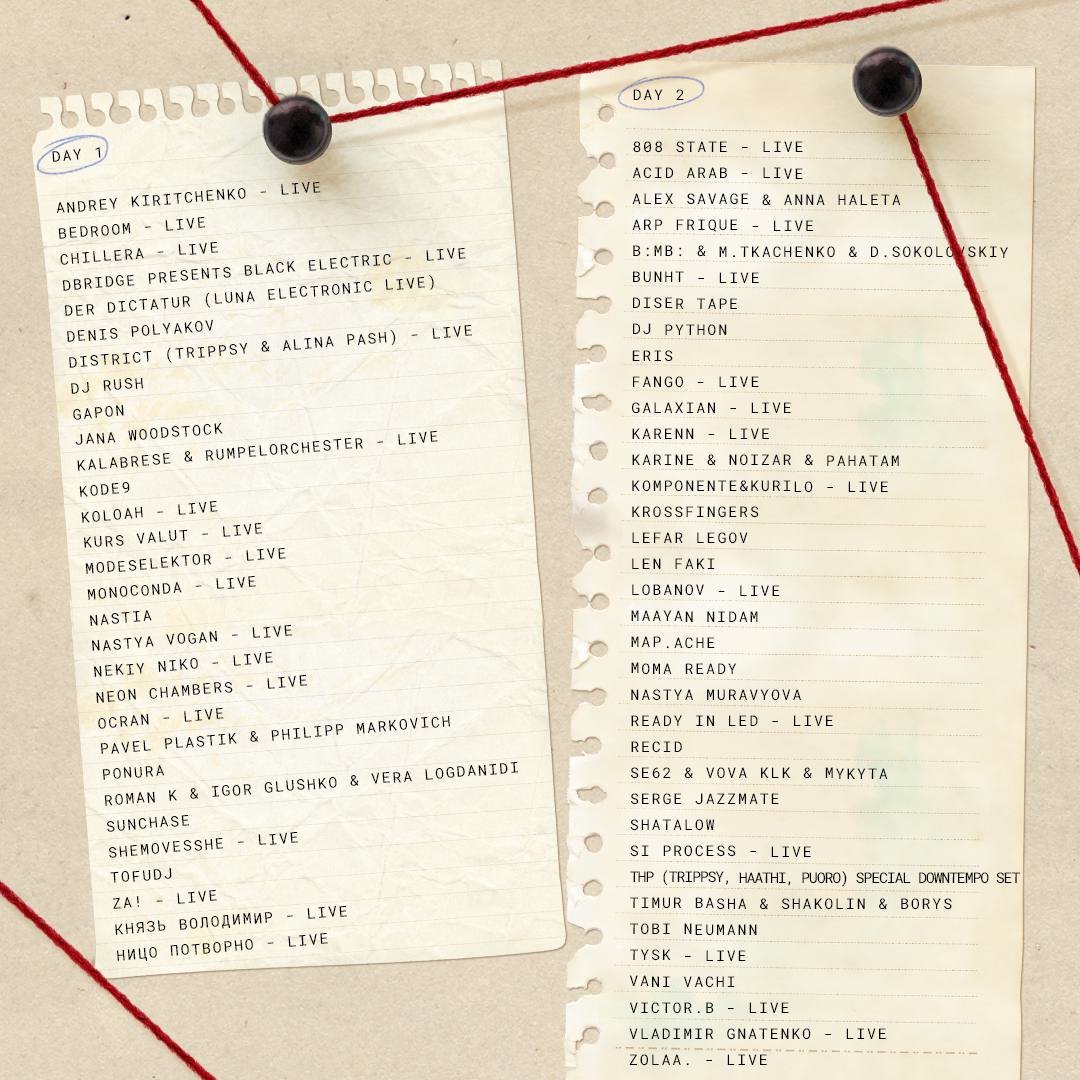 DAY 1
ANDREY KIRITCHENKO - LIVE
BEDROOM - LIVE
CHILLERA - LIVE
DBRIDGE PRESENTS BLACK ELECTRIC - LIVE
DER DICTATUR (LUNA ELECTRONIC LIVE)
DENIS POLYAKOV
DISTRICT (TRIPPSY & ALINA PASH) - LIVE
DJ RUSH
GAPON
JANA WOODSTOCK
KALABRESE & RUMPELORCHESTER - LIVE
KODE9
KOLOAH - LIVE
KURS VALUT - LIVE
MODESELEKTOR - LIVE
MONOCONDA - LIVE
NASTIA
NASTYA VOGAN - LIVE
NEKIY NIKO - LIVE
NEON CHAMBERS - LIVE
OCRAN - LIVE
PAVEL PLASTIK & PHILIPP MARKOVICH
PONURA
ROMAN K & IGOR GLUSHKO & VERA LOGDANIDI
SUNCHASE
SHEMOVESSHE - LIVE
TOFUDJ
ZA! - LIVE
КНЯЗЬ ВОЛОДИМИР - LIVE
НИЦО ПОТВОРНО - LIVE
DAY 2
808 STATE - LIVE
ACID ARAB - LIVE
ALEX SAVAGE & ANNA HALETA
ARP FRIQUE - LIVE
B:MB: & M.TKACHENKO & D.SOKOLOVSKIY
BUNHT - LIVE
DISER TAPE
DJ PYTHON
ERIS
FANGO - LIVE
GALAXIAN - LIVE
KARENN - LIVE
KARINE & NOIZAR & PAHATAM
KOMPONENTE&KURILO - LIVE
KROSSFINGERS
LEFAR LEGOV
LEN FAKI
LOBANOV - LIVE
MAAYAN NIDAM
MAP.ACHE
MOMA READY
NASTYA MURAVYOVA
READY IN LED - LIVE
RECID
SE62 & VOVA KLK & MYKYTA
SERGE JAZZMATE
SHATALOW
SI PROCESS - LIVE
THP (TRIPPSY, HAATHI, PUORO) SPECIAL DOWNTEMPO SET
TIMUR BASHA & SHAKOLIN & BORYS
TOBI NEUMANN
TYSK - LIVE
VANI VACHI
VICTOR.B - LIVE
VLADIMIR GNATENKO - LIVE
ZOLAA. - LIVE